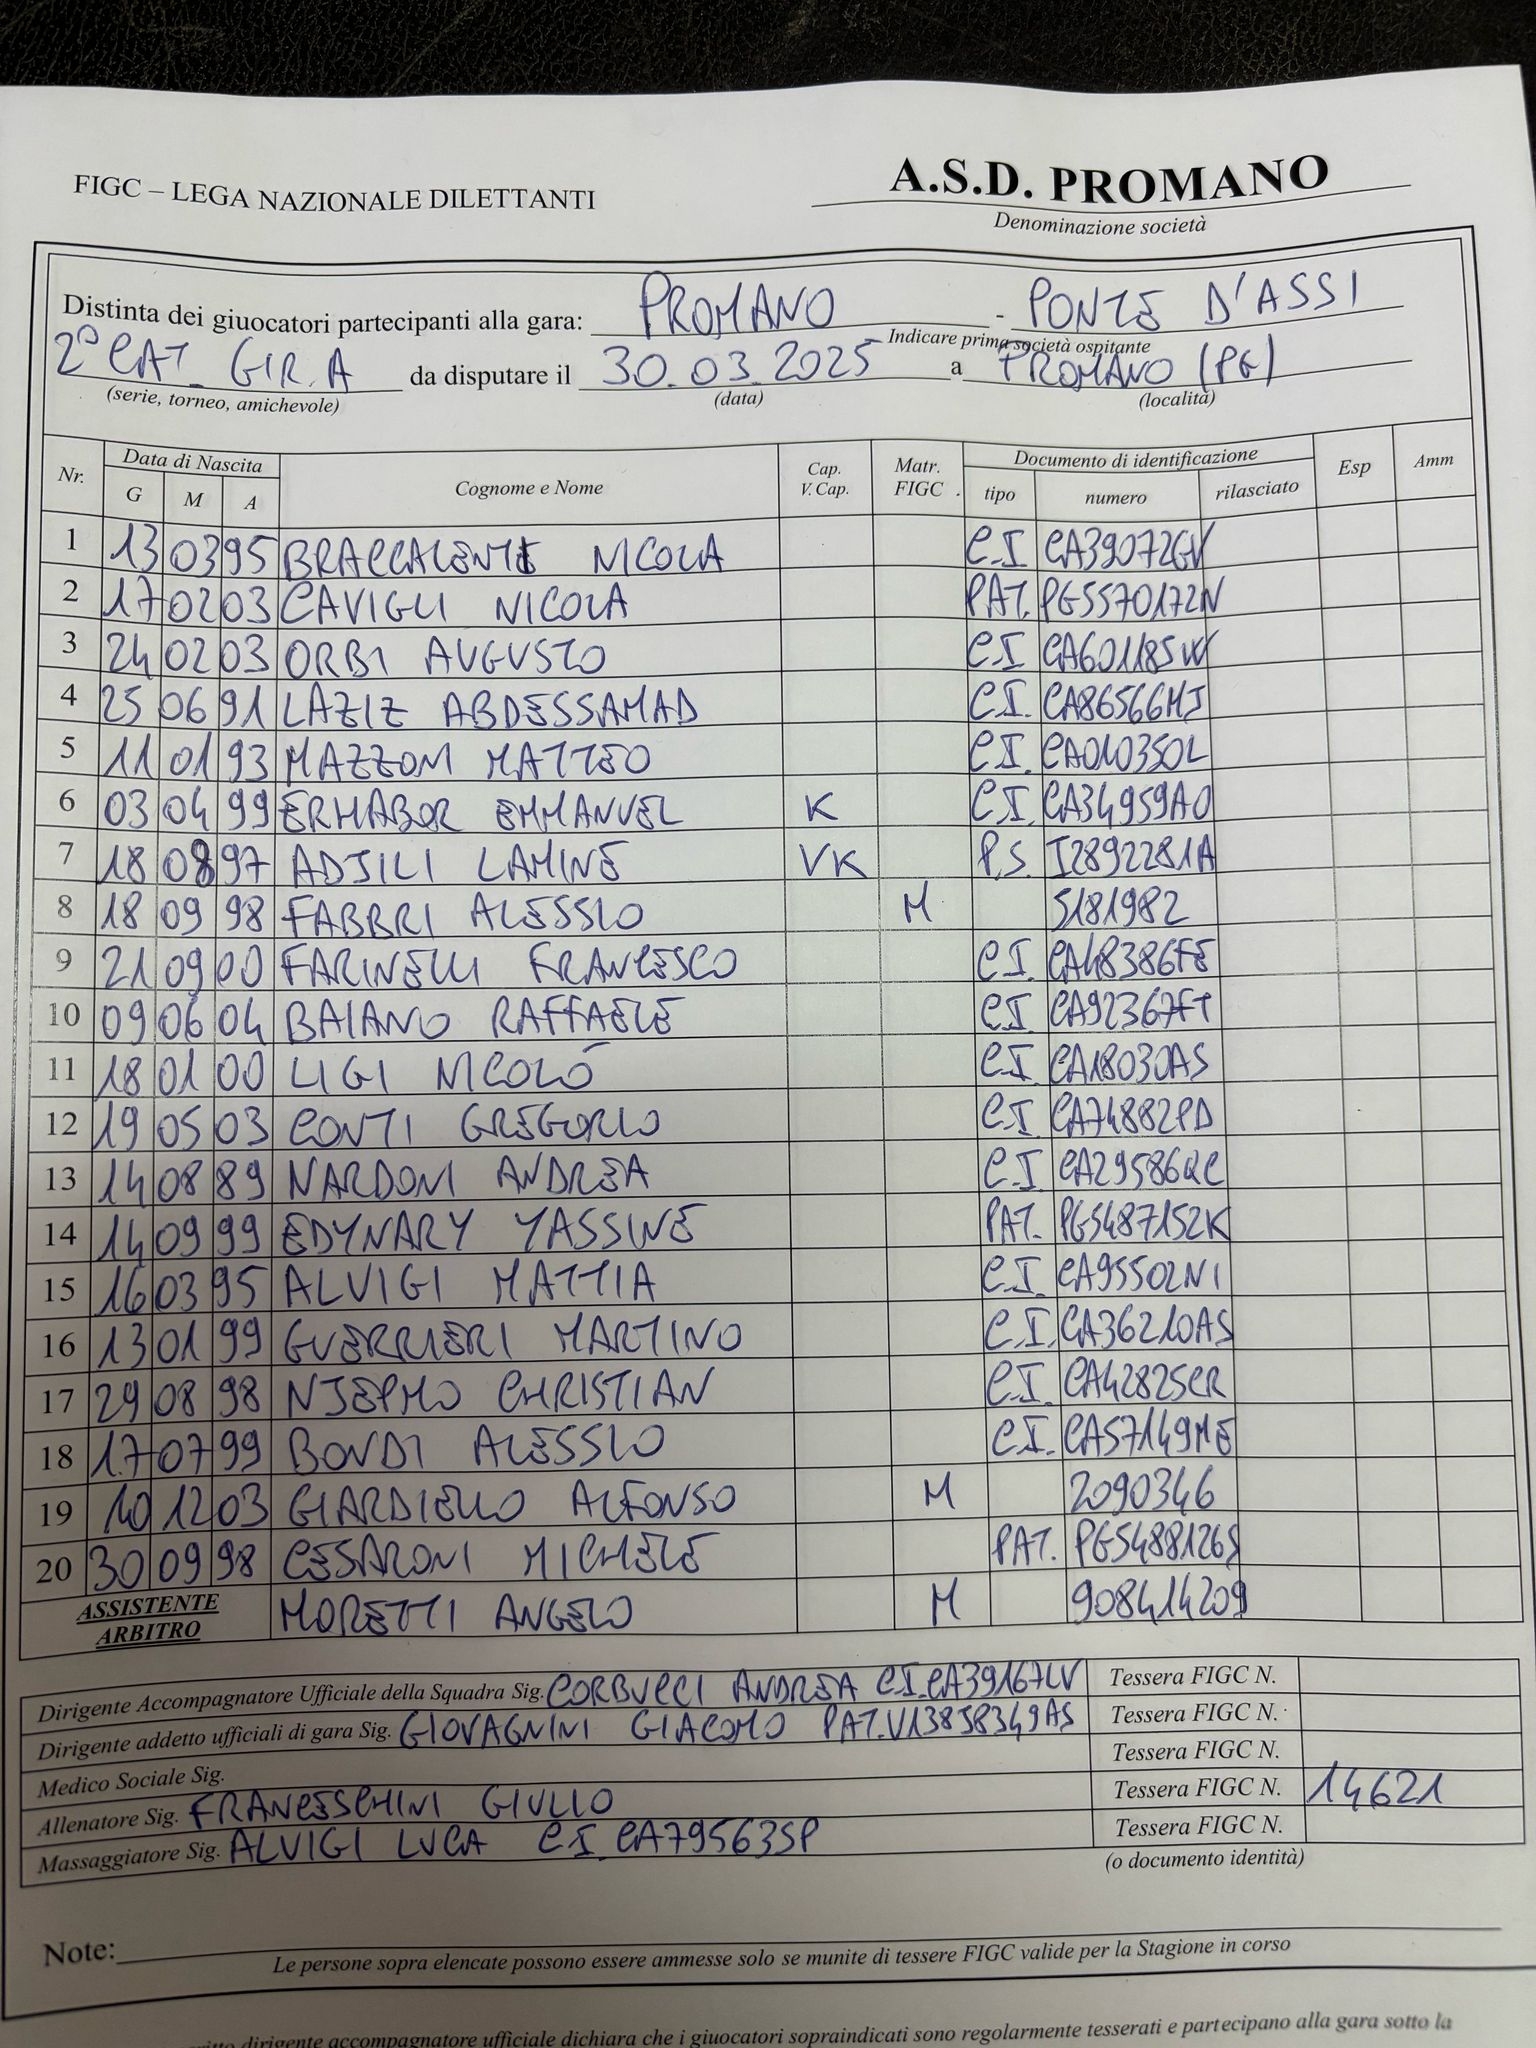 FIGC – LEGA NAZIONALE DILETTANTI
A.S.D. PROMANO
Denominazione società
Distinta dei giuocatori partecipanti alla gara: PROMANO - PONTE D'ASSI
Indicare prima società ospitante
2° CAT. GIR. A da disputare il 30.03.2025 a PROMANO (PG)
(serie, torneo, amichevole) (data) (località)
Nr. Data di Nascita G M A Cognome e Nome Cap. V. Cap. Matr. FIGC. Documento di identificazione tipo numero rilasciato Esp Amm
1 13 03 95 BRACCALENTI NICOLA C.I. CA39072GV
2 17 02 03 CAVIGLI NICOLA PAT. PG5570172N
3 24 02 03 ORBI AUGUSTO C.I. CA60118SW
4 25 06 91 LAZIZ ABDESSAMAD C.I. CA86566MJ
5 11 01 93 MAZZONI MATTEO C.I. CA04035OL
6 03 04 99 ERHABOR EMMANUEL K C.I. CA34959AO
7 18 08 97 ADJILI LAMINE VK P.S. I2892281A
8 18 09 98 FABBRI ALESSIO M 5181982
9 21 09 00 FARINELLI FRANCESCO C.I. CA48386FE
10 09 06 04 BAIANO RAFFAELE C.I. CA92367FT
11 18 01 00 LIGI NICOLÓ C.I. CA18030AS
12 19 05 03 CONTI GREGORIO C.I. CA74882PD
13 14 08 89 NARDONI ANDREA C.I. CA29586QC
14 14 09 99 EDYNARY YASSINE PAT. PG5487152K
15 16 03 95 ALUIGI MATTIA C.I. CA95502NI
16 13 01 99 GUERRIERI MARTINO C.I. CA36210AS
17 29 08 98 NJEPMO CHRISTIAN C.I. CA42825CR
18 17 07 99 BONDI ALESSIO C.I. CA57149ME
19 10 12 03 GIARDIELLO ALFONSO M 2090346
20 30 09 98 CESARONI MICHELE PAT. PG5488126S
ASSISTENTE ARBITRO MORETTI ANGELO M 908414209
Dirigente Accompagnatore Ufficiale della Squadra Sig. CORBUCCI ANDREA C.I. CA39167LV Tessera FIGC N.
Dirigente addetto ufficiali di gara Sig. GIOVAGNINI GIACOMO PAT. U13858349AS Tessera FIGC N.
Medico Sociale Sig. Tessera FIGC N.
Allenatore Sig. FRANCESCHINI GIULIO Tessera FIGC N. 14621
Massaggiatore Sig. ALUIGI LUCA C.I. CA79563SP Tessera FIGC N.
(o documento identità)
Note:
Le persone sopra elencate possono essere ammesse solo se munite di tessere FIGC valide per la Stagione in corso
dirigente accompagnatore ufficiale dichiara che i giuocatori sopraindicati sono regolarmente tesserati e partecipano alla gara sotto la